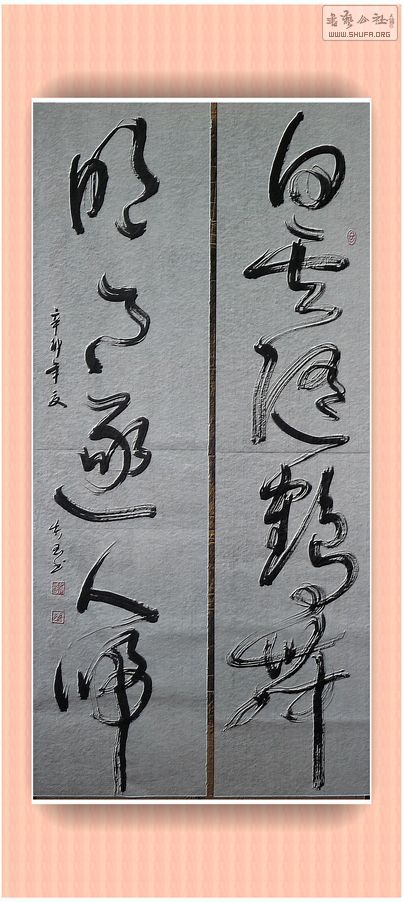 書藝公社
WWW.SHUFA.ORG
白云随鹤舞
明月逐人归
辛卯年夏